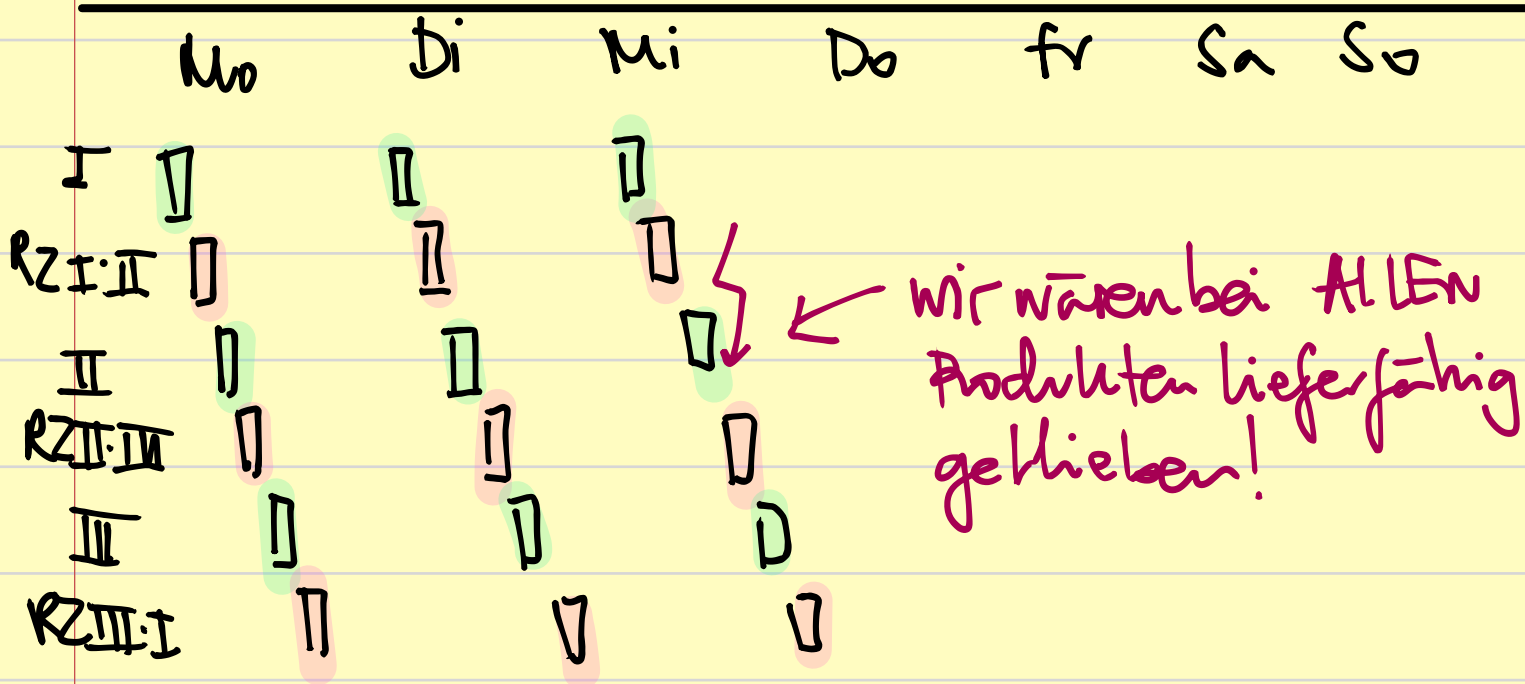 Mo Di Mi Do Fr Sa So
I
RZ I:II
II
RZ II:III
III
RZ III:I
Wir wären bei ALLEN
Produkten lieferfähig
geblieben!